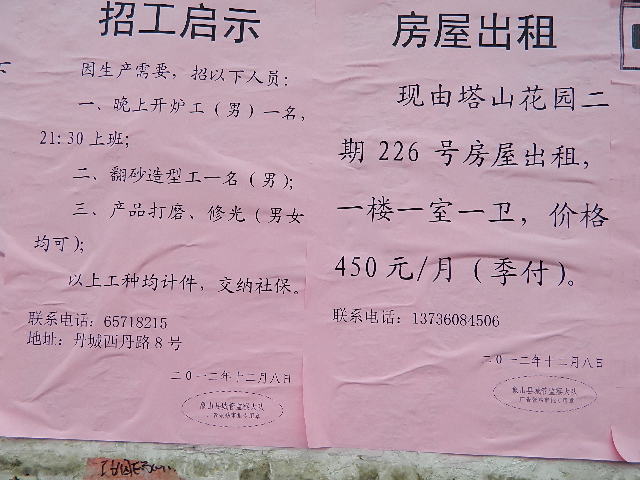 招工启示
因生产需要，招以下人员：
一、晚上开炉工（男）一名，
21:30上班；
二、翻砂造型工一名（男）；
三、产品打磨、修光（男女
均可）；
以上工种均计件，交纳社保。
联系电话：65718215
地址：丹城西丹路8号
二〇一二年十二月八日
象山县城管监察大队
房屋出租
现由塔山花园二
期226号房屋出租，
一楼一室一卫，价格
450元/月（季付）。
联系电话：13736084506
二〇一二年十二月八日
象山县城管监察大队